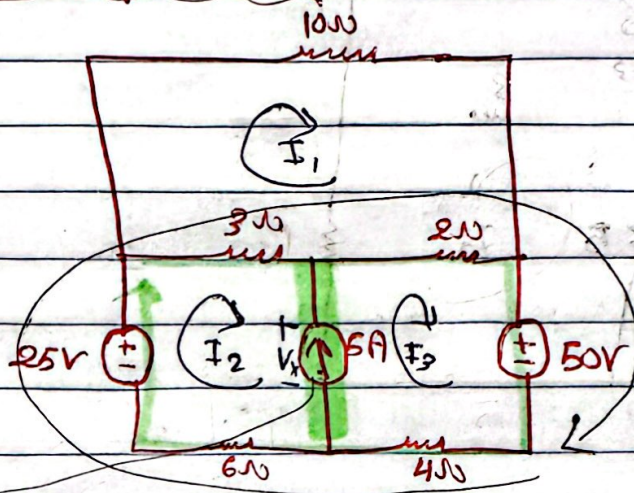 10Ω
I₁
3Ω 2Ω
25V + - I₂ + Vx - 5A I₃ + - 50V
6Ω 4Ω